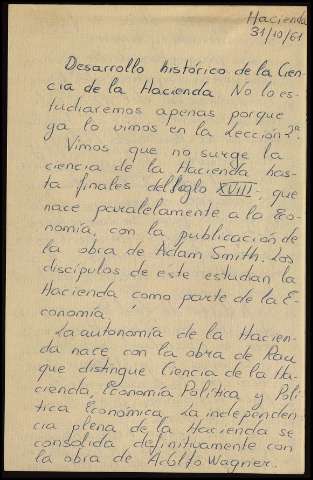 Hacienda
31/10/61
Desarrollo histórico de la Cien-
cia de la Hacienda No lo es-
tudiaremos apenas porque
ya lo vimos en la Lección 2ª.
Vimos que no surge la
ciencia de la Hacienda has-
ta finales del Siglo XVIII que
nace paralelamente a la Eco-
nomía, con la publicación de
la obra de Adam Smith. Los
discípulos de este estudian la
Hacienda como parte de la E-
conomía.
La autonomía de la Hacien-
da nace con la obra de Rau
que distingue Ciencia de la Ha-
cienda, Economía Política y Polí
tica Económica. La independen-
cia plena de la Hacienda se
consolida definitivamente con
la obra de Adolfo Wagner.